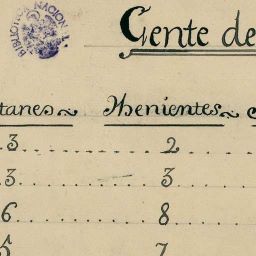 BIBLIOTECA NACIONAL
Gente de
tanes Thenientes
3 2
3 3
6 8
5 7